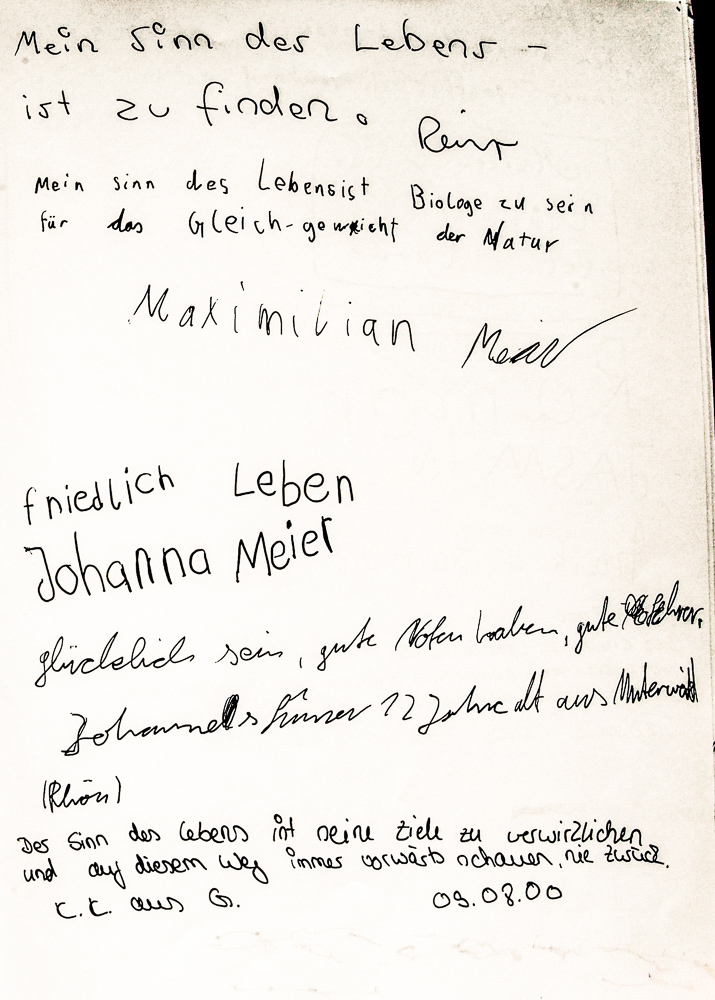 Mein Sinn des Lebens –
ist zu finden.
Mein sinn des Lebensist Biologe zu sein
für das Gleich-gewicht der Natur
Maximilian
friedlich Leben
Johanna Meier
glücklich sein, gute Noten haben, gute
Johannes 12 Jahre alt aus
(Rhön)
Der Sinn des Lebens ist seine Ziele zu verwirklichen
und auf diesem Weg immer vorwärts schauen, nie zurück.
C.C. aus G. 09.08.00